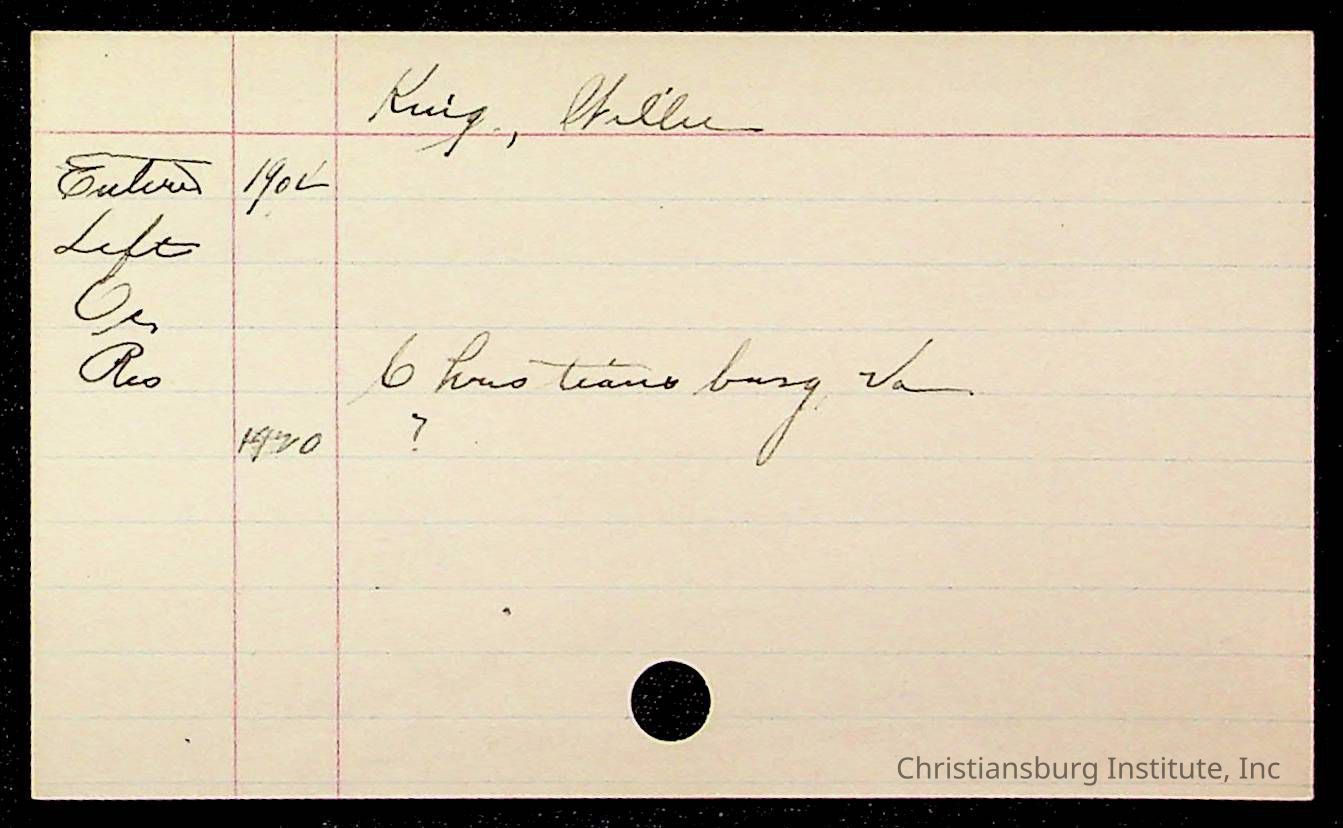 King, Willie
Entered 1902
Left
Oc
Res Christiansburg, Va
1920 ?
Christiansburg Institute, Inc